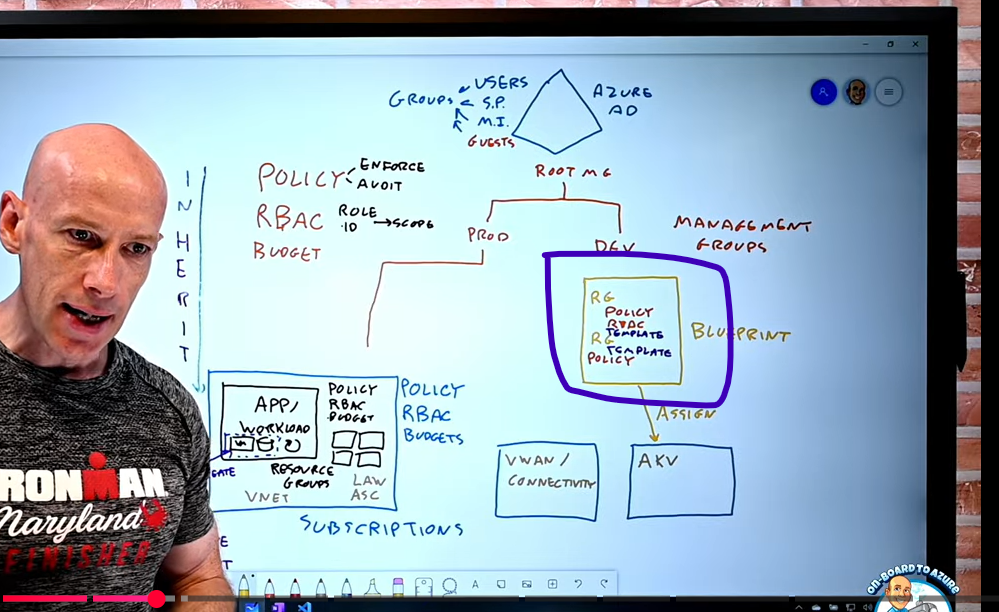 USERS
GROUPS
S.P.
M.I.
GUESTS
AZURE
AD
ROOT MG
POLICY
ENFORCE
AUDIT
RBAC
ROLE
ID
SCOPE
BUDGET
INHERIT
PROD
DEV
MANAGEMENT
GROUPS
RG
POLICY
RBAC
TEMPLATE
RG
TEMPLATE
POLICY
BLUEPRINT
ASSIGN
APP/
WORKLOAD
POLICY
RBAC
BUDGET
RESOURCE
GROUPS
VNET
LAW
ASC
POLICY
RBAC
BUDGETS
SUBSCRIPTIONS
VWAN/
CONNECTIVITY
AKV
IRONMAN
Maryland
FINISHER
ON-BOARD TO AZURE